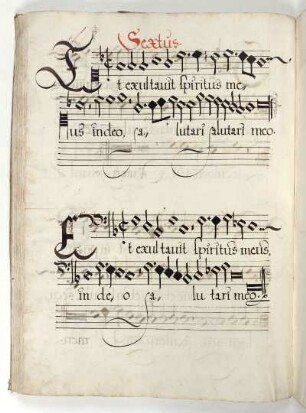 Sextus.
Et exultavit spiritus me,
us in deo, sa, lutari salutari meo
Et exultavit spiritus meus,
in de, o sa, lu tari meo